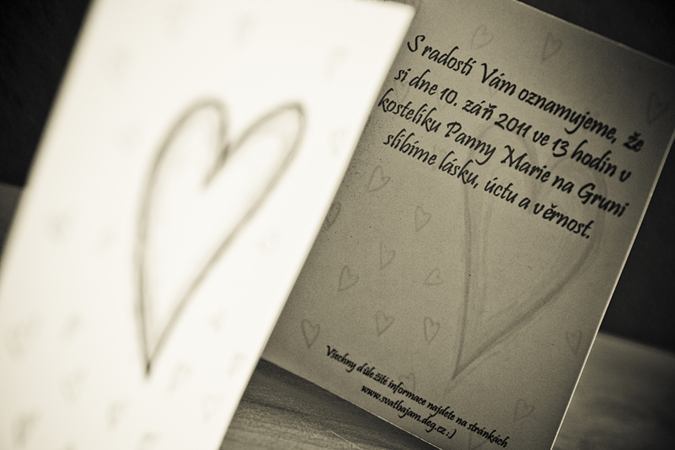 S radostí Vám oznamujeme, že
si dne 10. září 2011 ve 13 hodin v
kostelíku Panny Marie na Gruni
slíbíme lásku, úctu a věrnost.
Všechny důležité informace najdete na stránkách
www.svatbajam.deg.cz ;)